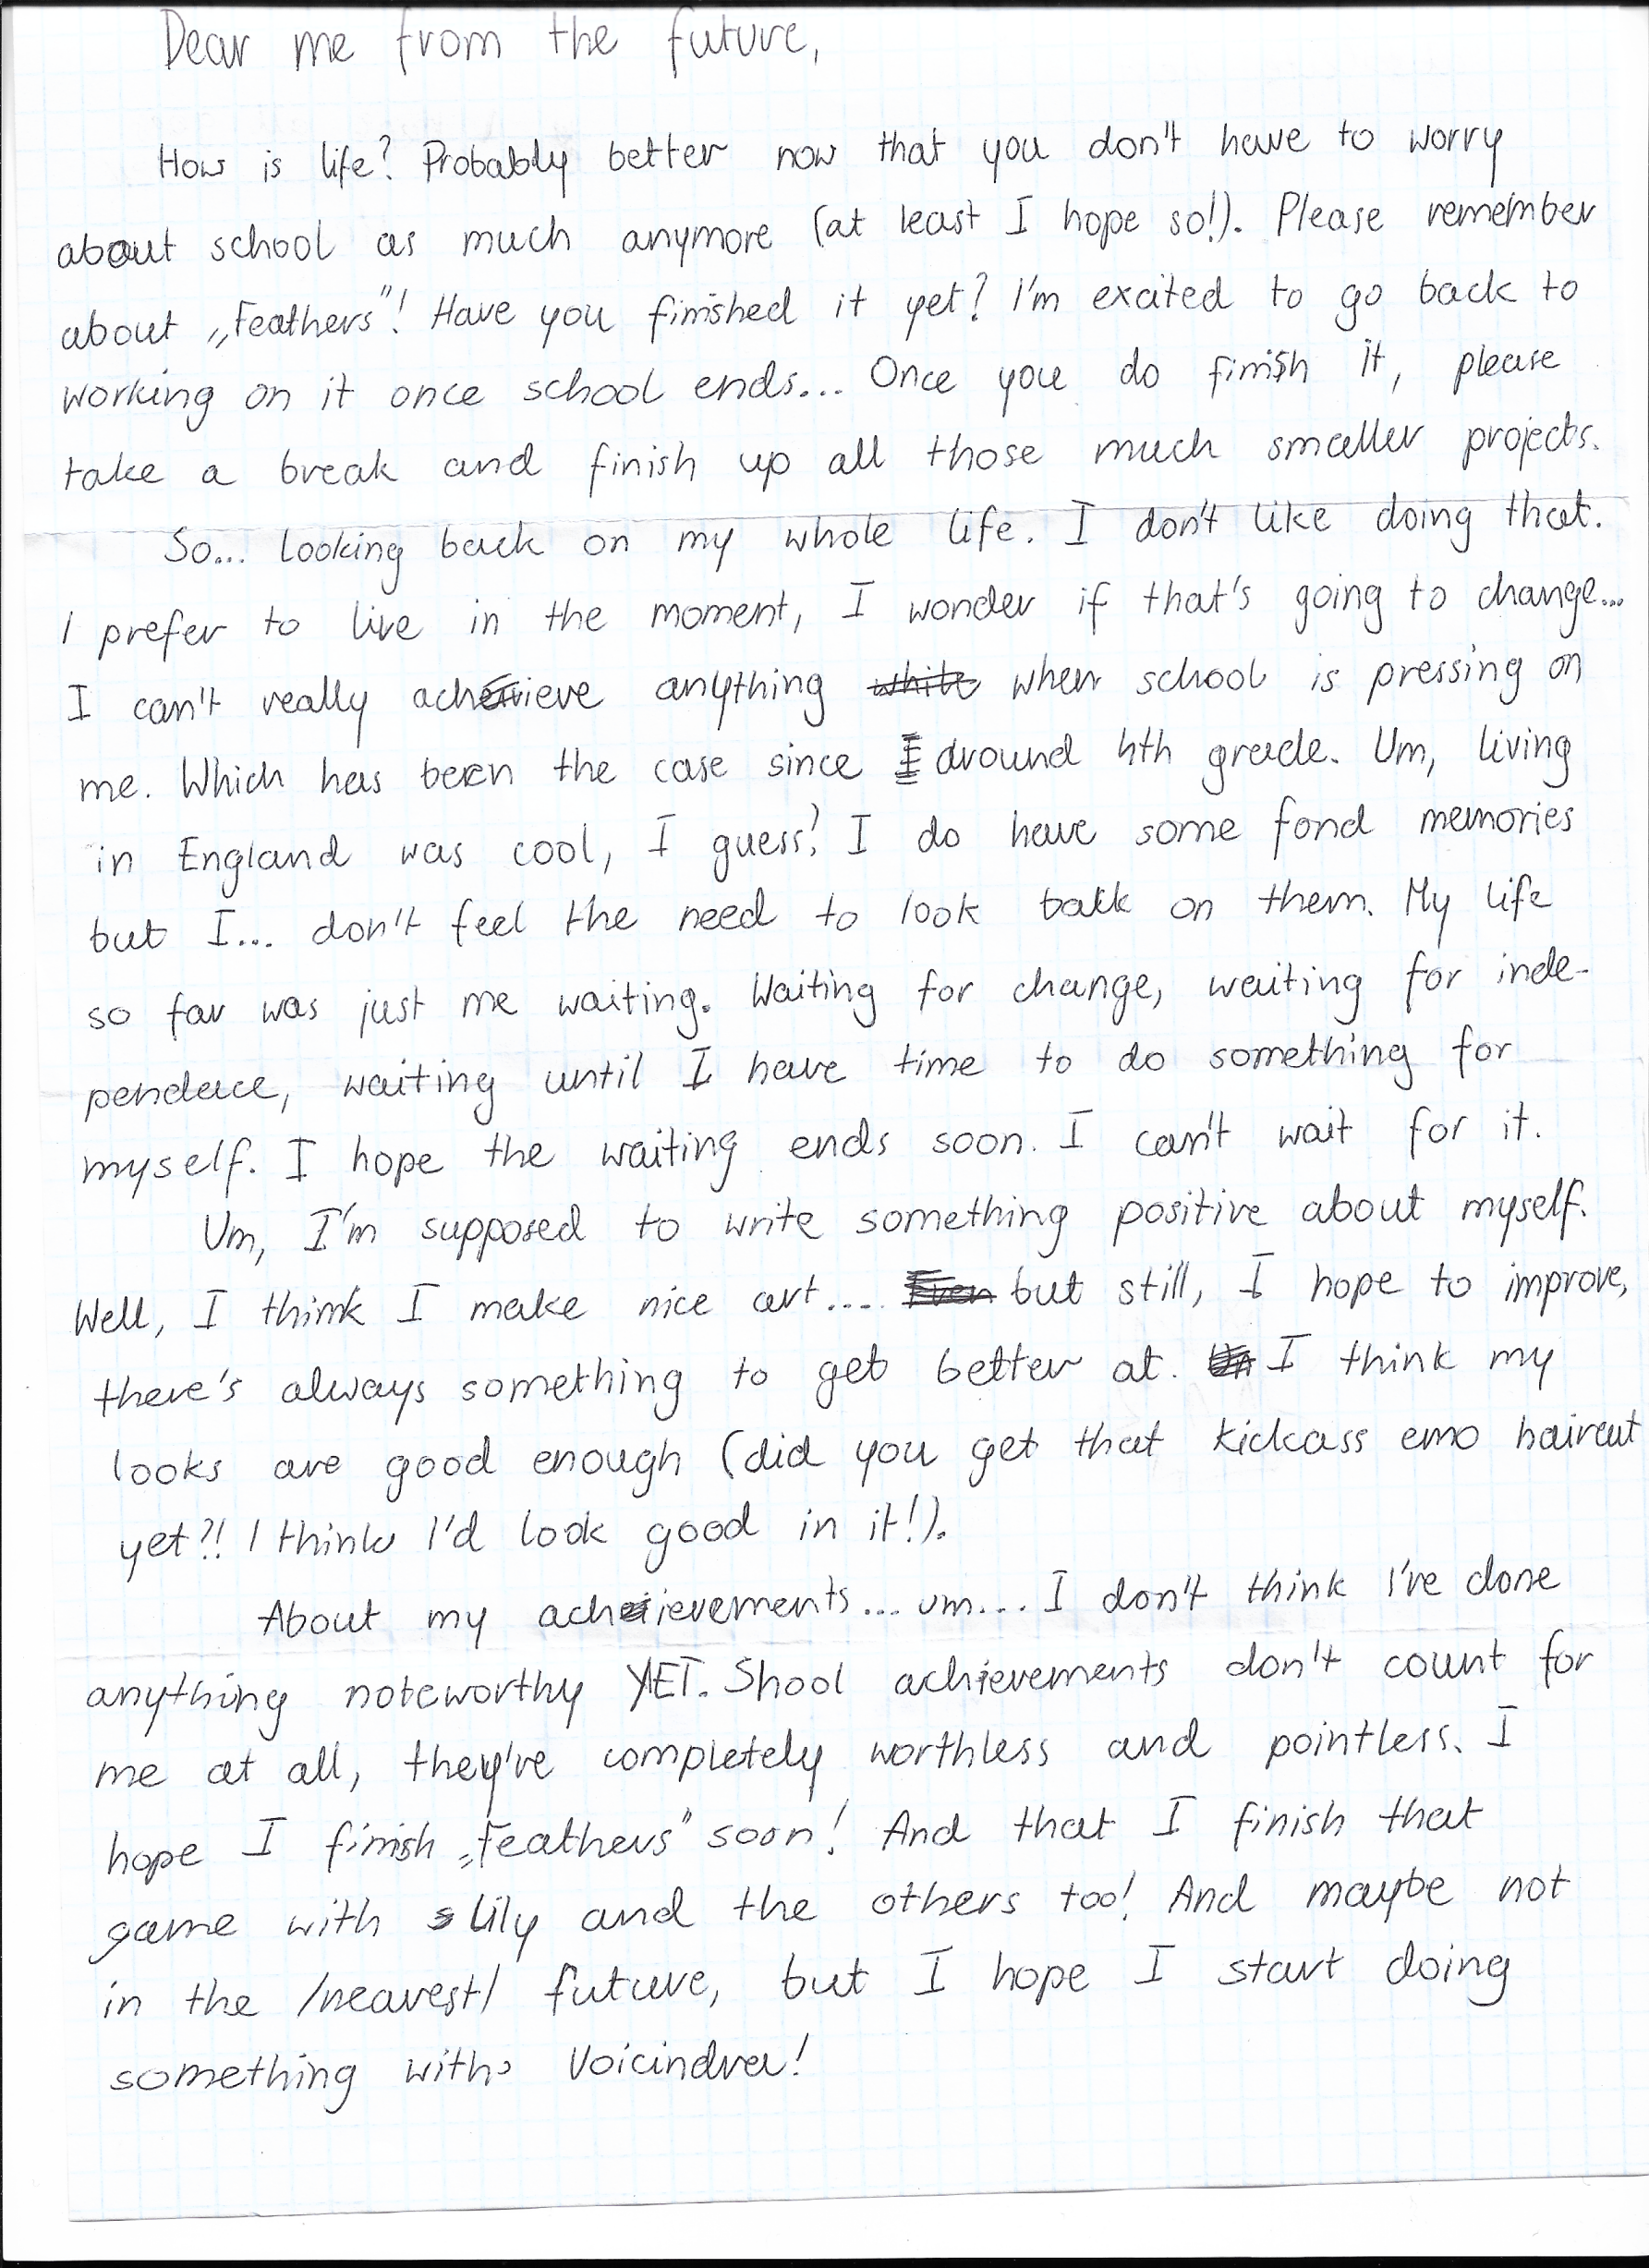 Dear me from the future,
How is life? Probably better now that you don't have to worry
about school as much anymore (at least I hope so!). Please remember
about „Feathers"! Have you finished it yet? I'm excited to go back to
working on it once school ends... Once you do finish it, please
take a break and finish up all those much smaller projects.
So... looking back on my whole life. I don't like doing that.
I prefer to live in the moment, I wonder if that's going to change...
I can't really achieve anything while when school is pressing on
me. Which has been the case since I around 4th grade. Um, living
in England was cool, I guess? I do have some fond memories
but I... don't feel the need to look back on them. My life
so far was just me waiting. Waiting for change, waiting for inde-
pendece, waiting until I have time to do something for
myself. I hope the waiting ends soon. I can't wait for it.
Um, I'm supposed to write something positive about myself.
Well, I think I make nice art.... Even but still, I hope to improve,
there's always something to get better at. Um I think my
looks are good enough (did you get that kickass emo haircut
yet?! I think I'd look good in it!).
About my achievements... um... I don't think I've done
anything noteworthy YET. Shool achievements don't count for
me at all, they're completely worthless and pointless. I
hope I finish „Feathers" soon! And that I finish that
game with Lily and the others too! And maybe not
in the /nearest/ future, but I hope I start doing
something with Voicindra!